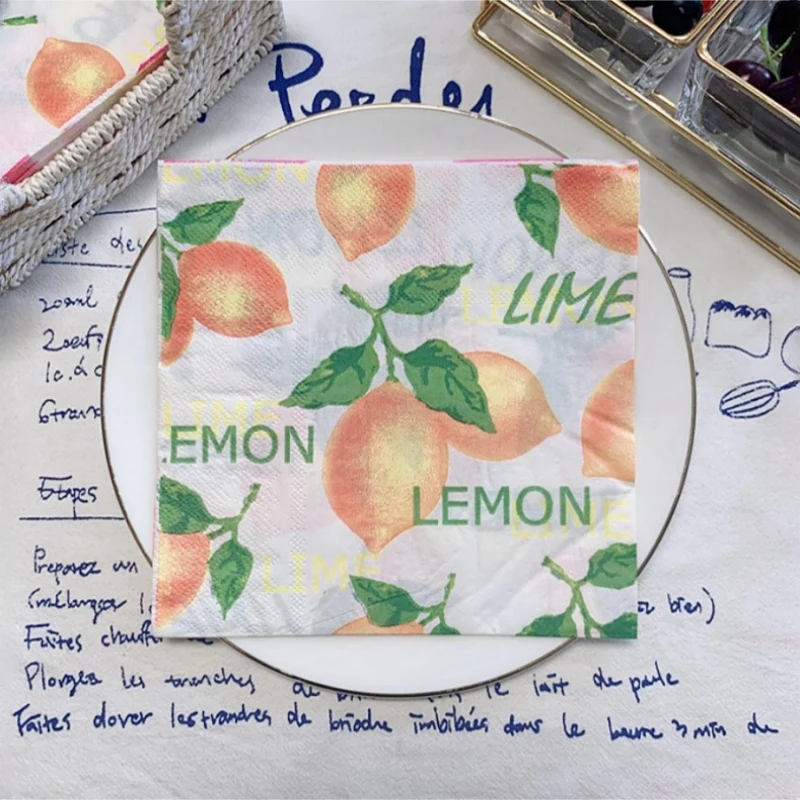 Perdes
LEMON
LIME
LIME
LEMON
LEMON
LIME
LIME
Liste des
200ml
2oeufs
1c. à c
6tran
Etapes
Preparez un
(mélanger bien)
Faites chauff
Plongez les tranches de le lait de poule
Faites dorer les trandres de brioche imbibées dans le beurre 3 min de